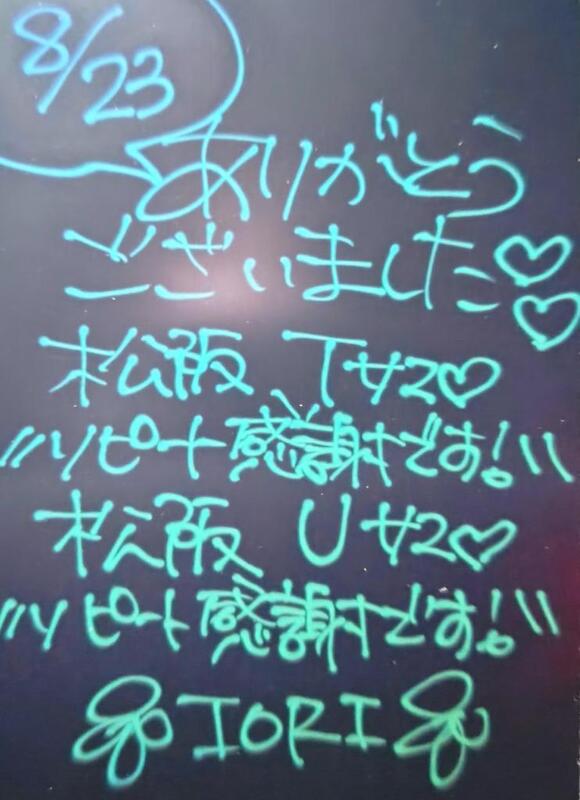 8/23
ありがとう
ございました♡♡
松阪 Tサン♡
\\リピート感謝です!//
松阪 Uサン♡
\\リピート感謝です!//
IORI